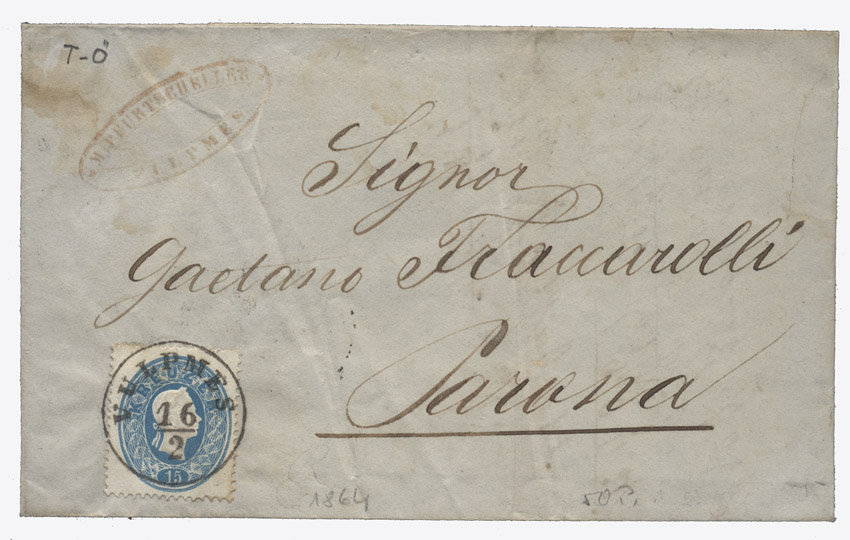 T-Ö
M. PFURTSCHELLER
VULPMES
Signor
Gaetano Fraccarolli
Parona
VULPMES
16
2
15
1864
50 P.